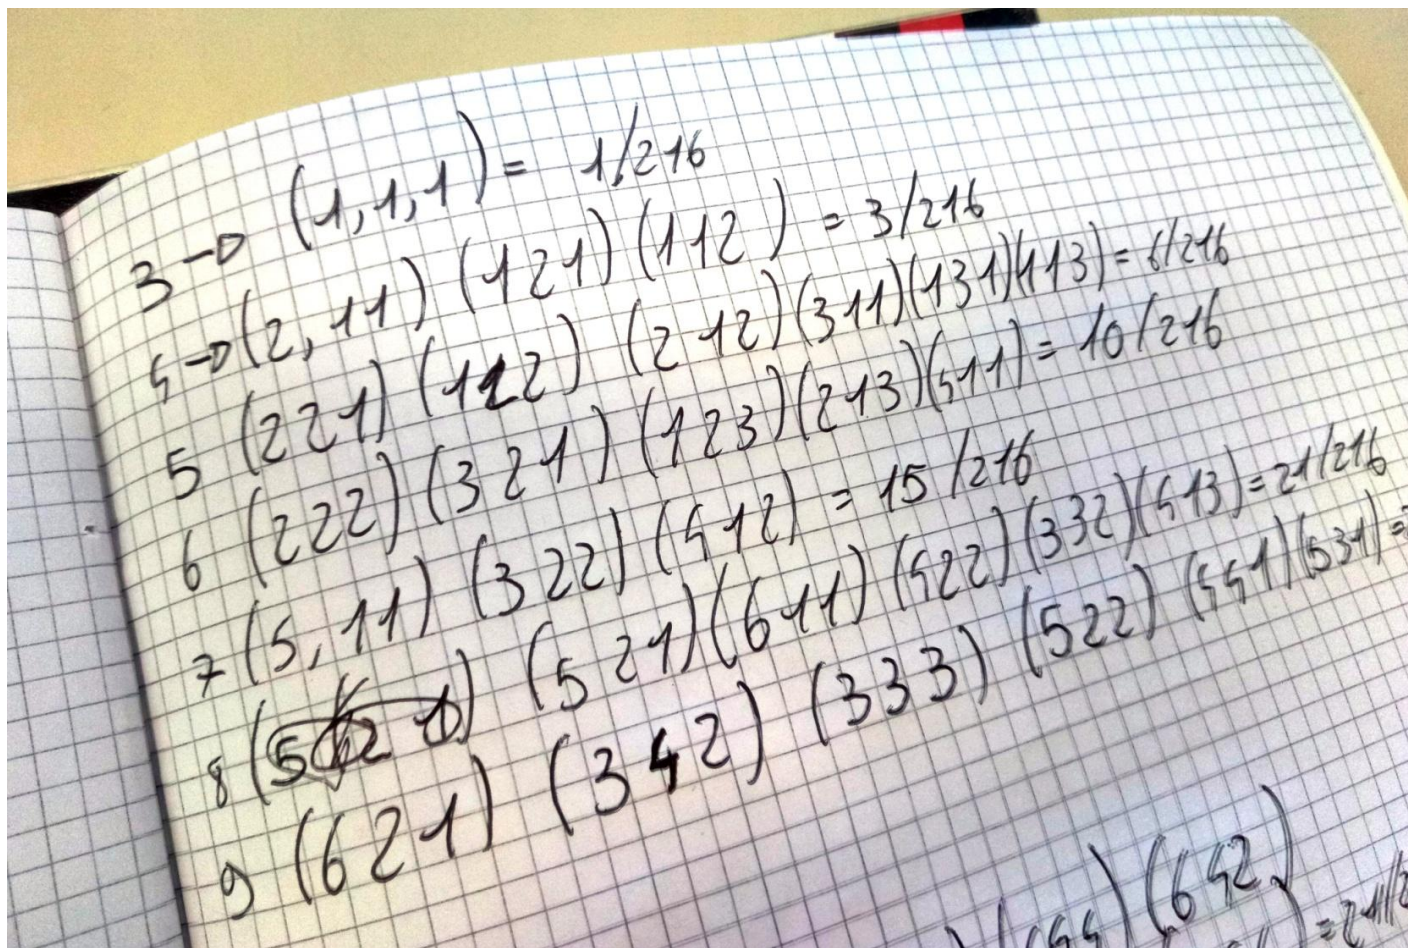 3 → (1,1,1) = 1/216
4 → (2,11) (121) (112) = 3/216
5 (221) (122) (212) (311) (131) (113) = 6/216
6 (222) (321) (123) (213) (411) = 10/216
7 (5,11) (322) (412) = 15/216
8 (521) (611) (422) (332) (413) = 21/216
9 (621) (342) (333) (522) (441) (531) =
(642)
= 21/2